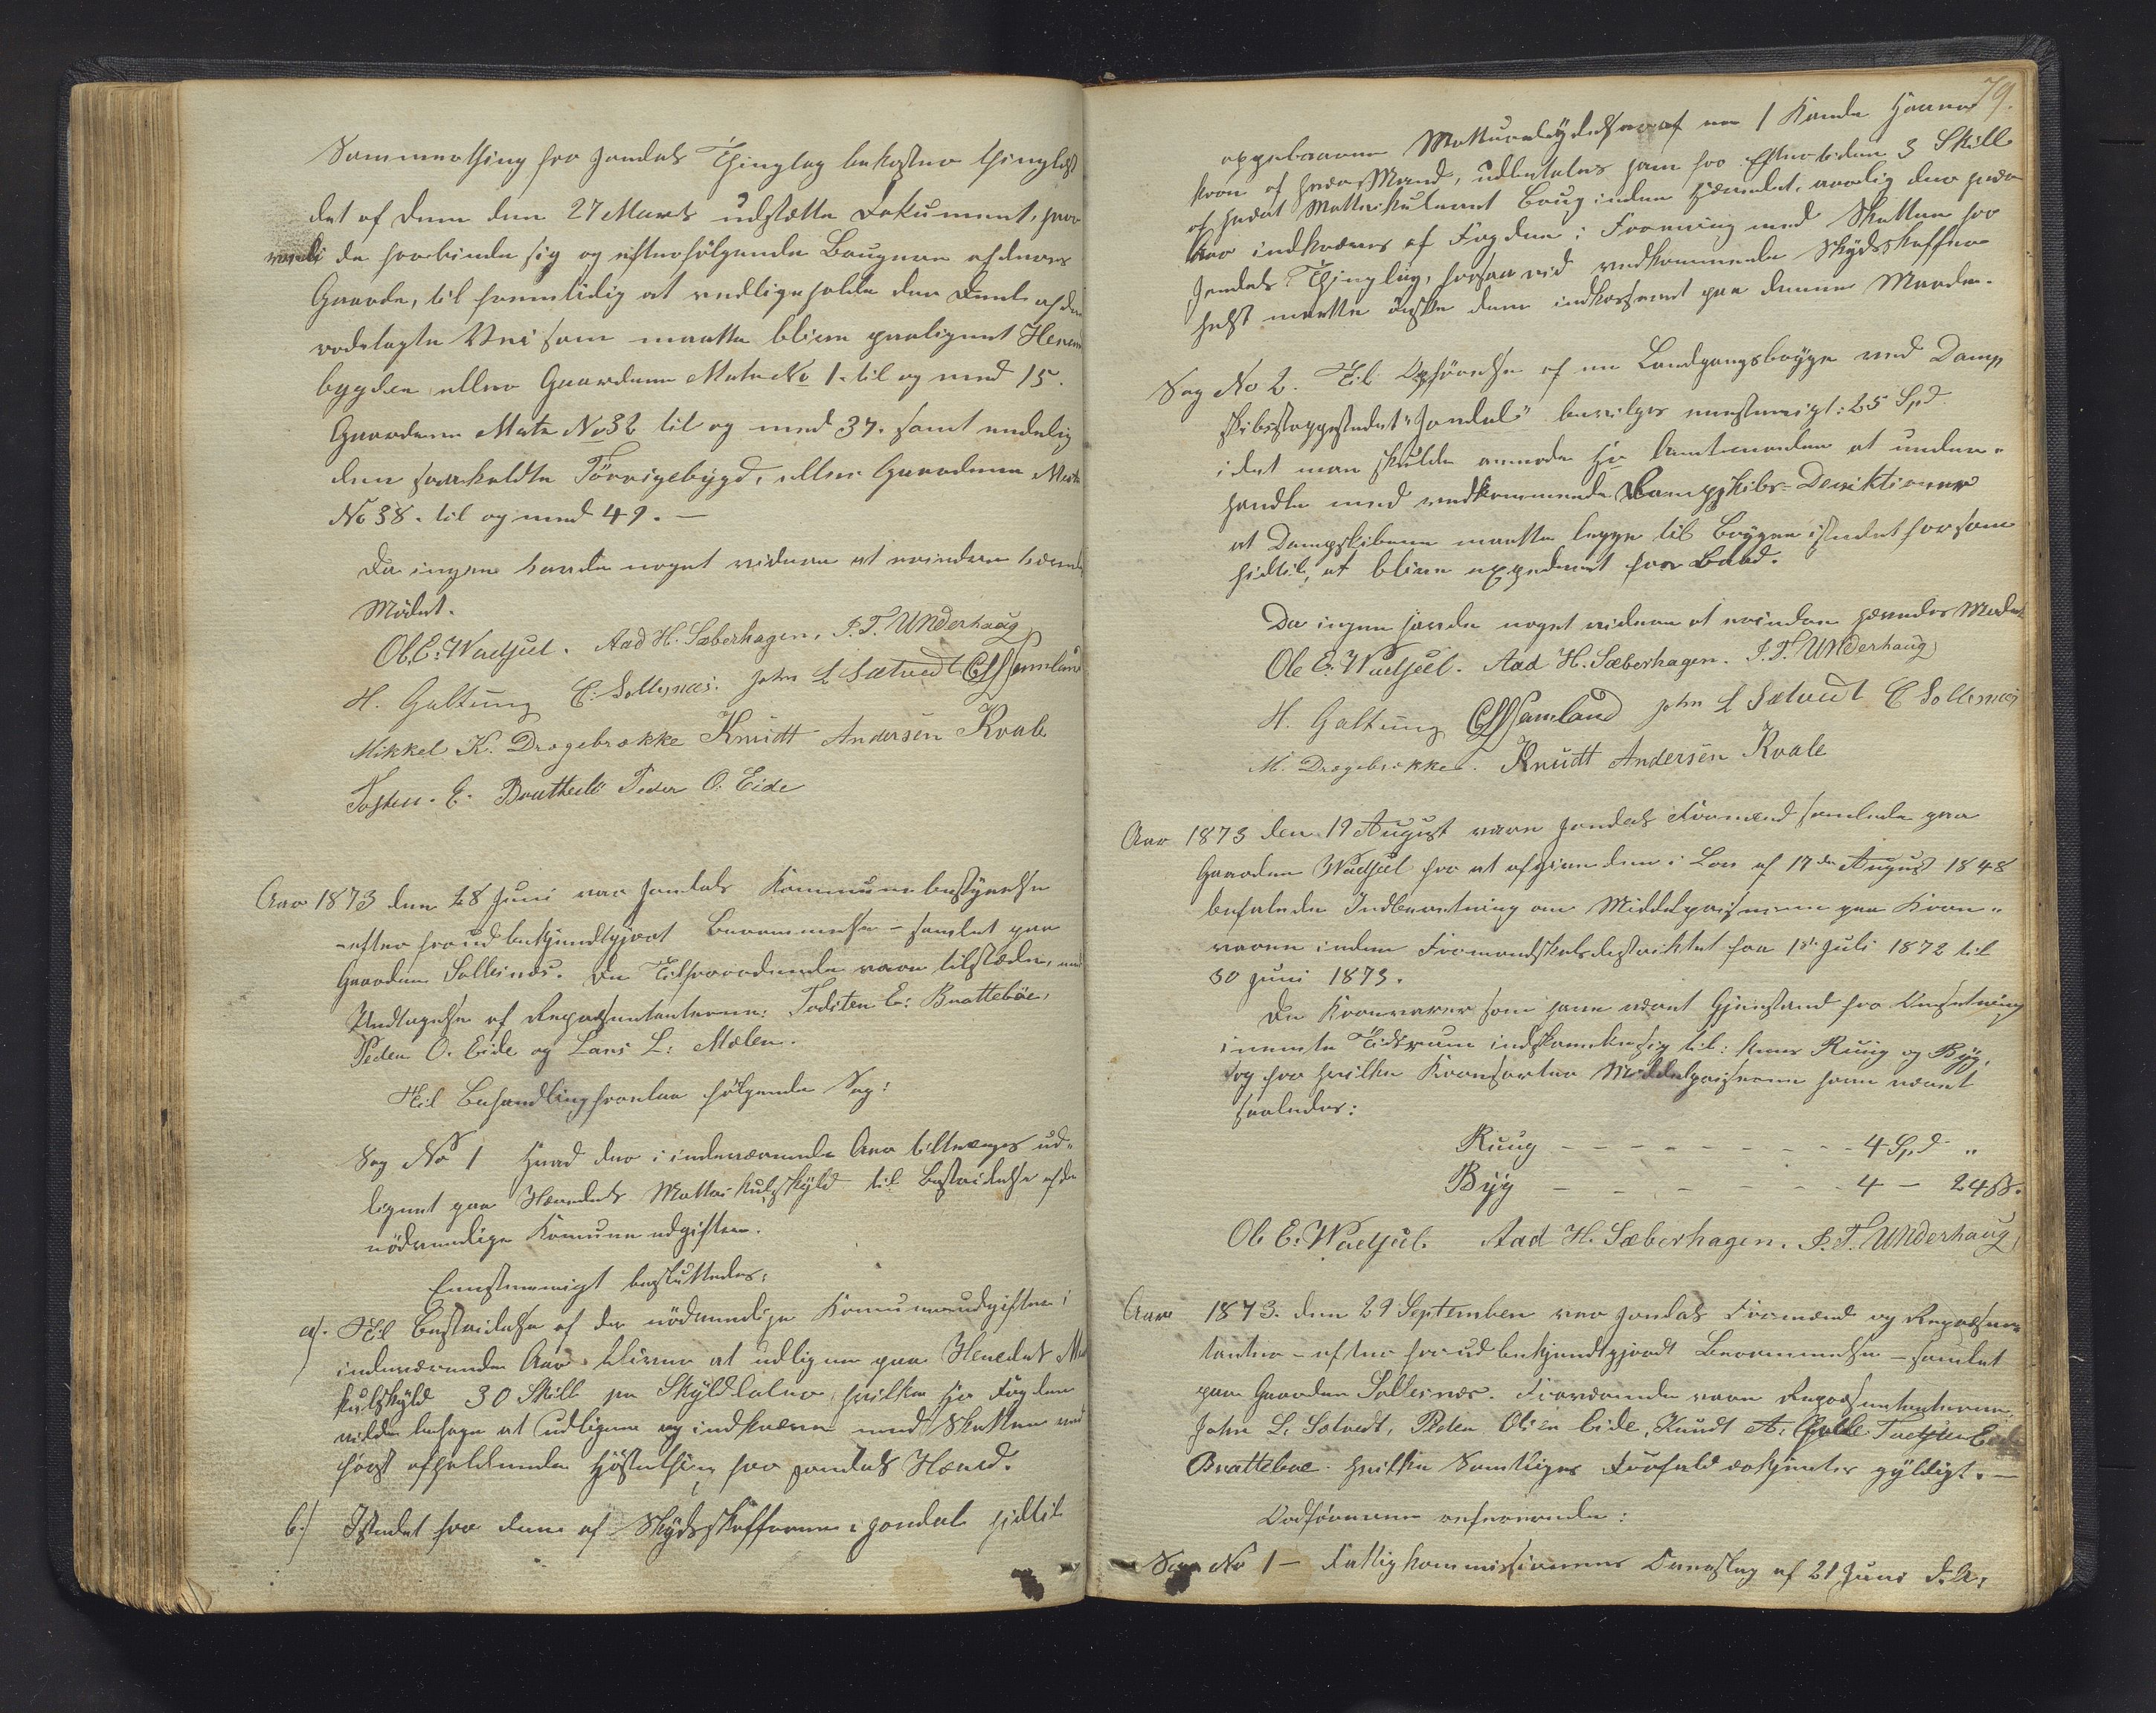 Sommerthing for Jondals Thinglag bekoster thinglæst
det af dem den 27 Marts udstædte Dokument, hvor
ved de forbinde sig og efterfølgende Brugere af deres
Gaarde, til fremtidig at vedligeholde den Deel af den
rodelagte Vei som maatte blive paalignet Heren
bygden eller Gaardene Matr No 1. til og med 15.
Gaardene Matr No 32 til og med 37. samt endelig
den saakaldte Törvigebygd, eller Gaardene Matr
No 38. til og med 49. —
Da ingen havde noget videre at erindre hæved
Mødet.
Ole E. Waehjul. Aad H. Sæberhagen. P. T. Underhaug
H. Galtung E. Sollesnæs. John L Sætvedt Samland
Mikkel K. Dragebrække Knudt Andersen Kvale
Tosten. E. Brattebö Peder O. Eide
Aar 1873 den 28 Juni var Jondals Kommunebestyrelse
- efter forud bekjendtgjort Berammelse - samlet paa
Gaarden Sollesnæs. De Tilforordnede vare tilstæde, med
Undtagelse af Repræsentanterne: Torsten E: Brattebøe,
Peder O. Eide og Lars L: Mælen.
Til Behandling forelaa følgende Sag:
Sag No 1 Hvad der i indeværende Aar tiltrænges ud-
lignet paa Herredets Mattrikulskyld til Bestridelse af de
nödvendige Komuneudgifter.
Eenstemmigt besluttedes:
a). Til Bestridelse af de nödvendige Komuneudgifter i
indeværende Aar bliver at udligne paa Herredets Mat
kulskyld 30 Skill pr Skylddaler, hvilke Hr Fogden
vilde behage at udligne og indkræve med Skatten ved
först afholdende Høstething for Jondals Herred.
b.) Istedet for den af Skydsskafferne i Jondal hidtil
79.
oppebaarne Naturalydelse af en 1 Kande Havre
korn af hver Mand, udbetales ham for Eftertiden 3 Skill
af hvert Mattrikuleret Brug inden Herredet, aarlig der hver
Aar indkræves af Fogden i Forening med Skatten for
Jondals Thinglag, forsaavidt vedkommende Skydsskaffer
helst maatte önske dem indkasseret paa denne Maade.
Sag No 2. Til Opførelse af en Landgangsbrygge ved Damp
skibsstoppestedet "Jondal" bevilges eenstemigt: 25 Spd
idet man skulde anmode Hr Amtmanden at under-
handle med vedkommende Dampskibs-Direktioner
at Dampskibene maatte lægge til Bryggen istedetfor som
hidtil, at blive expederet pr Baad.
Da ingen havde noget videre at erindre hævedes Mødet
Ole E. Waehjul. Aad H. Sæberhagen. P. T. Underhaug
H. Galtung Samland John L Sætvedt E Sollesnæs
M. Dragebrække. Knudt Andersen Kvale
Aar 1873 den 19 August vare Jondals Formænd samlede paa
Gaarden Waehjul for at afgive den i Lov af 17de August 1848
befalede Indberetning om Middelpriserne paa Korn-
varer inden Formandskabsdistriktet fra 1ste Juli 1872 til
30 Juni 1873.
De Kornvarer som have været Gjenstand for Omsetning
i nævnte Tidsrum indskrænke sig til: kuns Ruug og Byg,
og for hvilke Kornsorter Middelpriserne have været
saaledes:
Ruug - - - - - - - 4 Spd "
Byg - - - - - - - 4 - 24 ß.
Ole E. Waehjul. Aad H. Sæberhagen. P. T. Underhaug
Aar 1873. den 29 September var Jondals Formænd og Repræsen
tanter - efter forud bekjendtgjordt Berammelse - samlet
paa Gaarden Sollesnæs. Fraværende vare Repræsentanterne
John L. Sætvedt, Peder Olsen Eide, Knudt A. Qvale
Brattebøe. hvilke Samtliges Forfald erkjendtes gyldigt. —
Ordføreren refererede:
Sag No 1 - Fattigkommissionens Forslag af 21 Juni d. A.